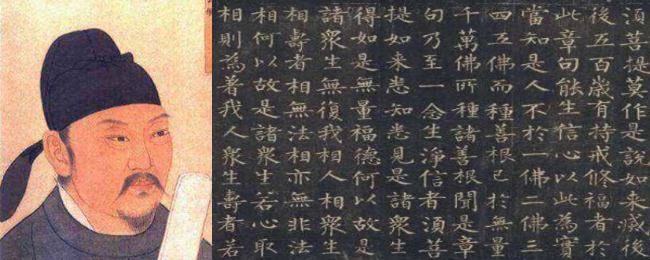 須菩提莫作是說如来滅後
後五百歲有持戒修福者於
此章句能生信心以此為實
當知是人不於一佛二佛三
四五佛而種善根已於無量
千萬佛所種諸善根聞是章
句乃至一念生淨信者須菩
提如来悉知悉見是諸衆生
得如是無量福德何以故是
諸衆生無復我相人相衆生
相壽者相無法相亦無非法
相何以故是諸衆生若心取
相則為著我人衆生壽者若